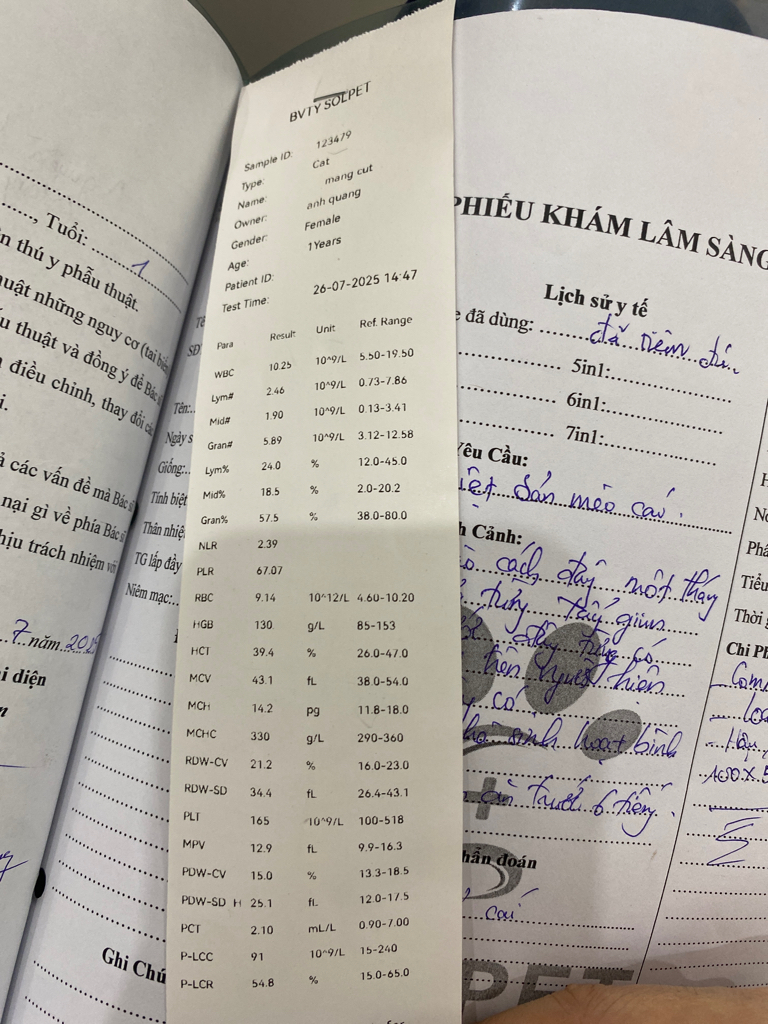 ..., Tuổi: 1
n thú y phẫu thuật.
uật những nguy cơ (tai biến
u thuật và đồng ý để Bác s
điều chỉnh, thay đổi các
i.
ả các vấn đề mà Bác s
nại gì về phía Bác s
hịu trách nhiệm v
7 năm 202
i diện
Ghi Chú
Tên:
Ngày s
Giống:
Tính biệt
Thân nhiệ
TG lấp đầy
Niêm mạc:
BVTY SOLPET
Sample ID: 123479
Type: Cat
Name: mang cut
Owner: anh quang
Gender: Female
Age: 1Years
Patient ID:
Test Time: 26-07-2025 14:47
Para Result Unit Ref. Range
WBC 10.25 10^9/L 5.50-19.50
Lym# 2.46 10^9/L 0.73-7.86
Mid# 1.90 10^9/L 0.13-3.41
Gran# 5.89 10^9/L 3.12-12.58
Lym% 24.0 % 12.0-45.0
Mid% 18.5 % 2.0-20.2
Gran% 57.5 % 38.0-80.0
NLR 2.39
PLR 67.07
RBC 9.14 10^12/L 4.60-10.20
HGB 130 g/L 85-153
HCT 39.4 % 26.0-47.0
MCV 43.1 fL 38.0-54.0
MCH 14.2 pg 11.8-18.0
MCHC 330 g/L 290-360
RDW-CV 21.2 % 16.0-23.0
RDW-SD 34.4 fL 26.4-43.1
PLT 165 10^9/L 100-518
MPV 12.9 fL 9.9-16.3
PDW-CV 15.0 % 13.3-18.5
PDW-SD H 25.1 fL 12.0-17.5
PCT 2.10 mL/L 0.90-7.00
P-LCC 91 10^9/L 15-240
P-LCR 54.8 % 15.0-65.0
PHIẾU KHÁM LÂM SÀNG
Lịch sử y tế
e đã dùng: đã tiêm đủ
5in1:
6in1:
7in1:
Yêu Cầu:
sản mèo cái.
h Cảnh:
cách đây một tháng
từng tẩy giun
sinh hoạt bình
ăn trước 6 tiếng.
hẩn đoán
cái
Phá
Tiểu
Thời g
Chi Ph